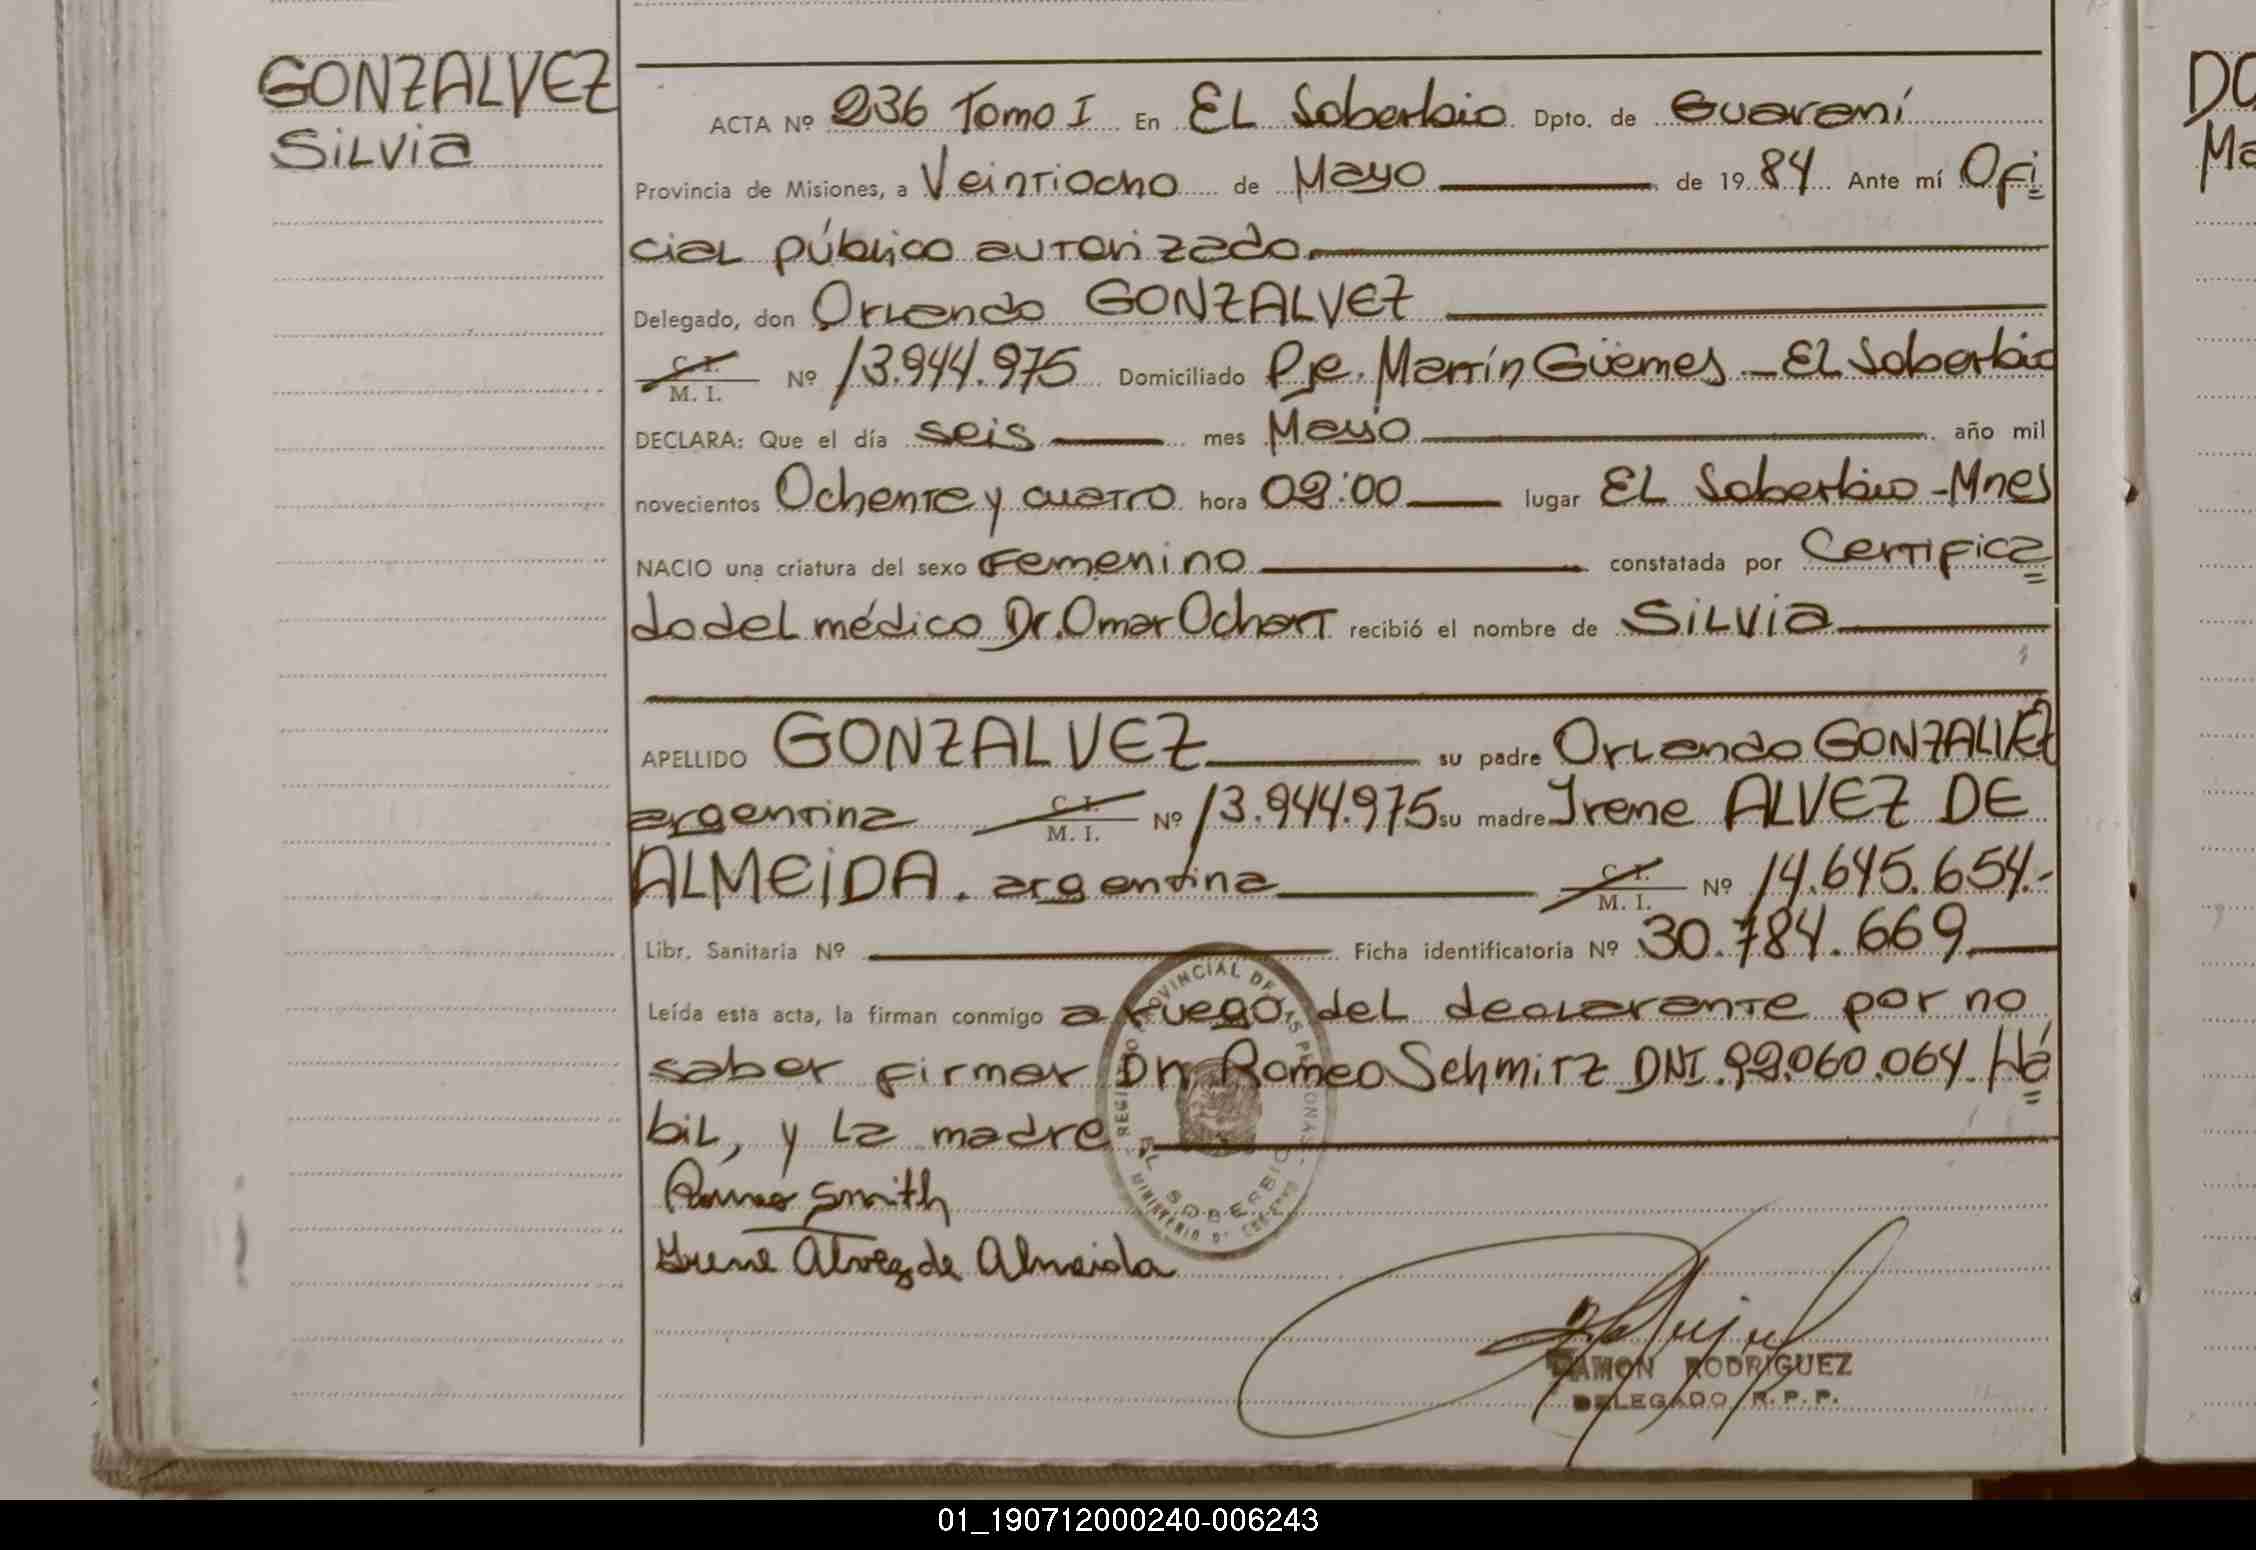 GONZALVEZ
Silvia
ACTA Nº 236 Tomo I En EL Soberbio Dpto. de Guaraní
Provincia de Misiones, a Veintiocho de Mayo de 1984 Ante mí Ofi
cial público autorizado.
Delegado, don Orlando GONZALVEZ
C. I.
M. I. Nº 13.944.975 Domiciliado Pje. Martín Güemes - El Soberbio
DECLARA: Que el día seis mes Mayo año mil
novecientos Ochenta y cuatro hora 02:00 lugar EL Soberbio - Mnes
NACIO una criatura del sexo Femenino constatada por Certifica
do del médico Dr. Omar Ochart recibió el nombre de Silvia
APELLIDO GONZALVEZ su padre Orlando GONZALVEZ
argentina C. I. M. I. Nº 13.944.975 su madre Irene ALVEZ DE
ALMEIDA. argentina C. I. M. I. Nº 14.645.654.-
Libr. Sanitaria Nº Ficha identificatoria Nº 30.784.669
Leída esta acta, la firman conmigo a ruego del declarante por no
saber firmar Dn Romeo Schmitz DNI. 92.060.064. Há
bil, y la madre.
REGISTRO PROVINCIAL DE LAS PERSONAS
EL SOBERBIO
MINISTERIO DE GOBIERNO
Romeo Smith
Irene Alvez de Almeida
RAMON RODRIGUEZ
DELEGADO R.P.P.
DO
Ma
01_190712000240-006243